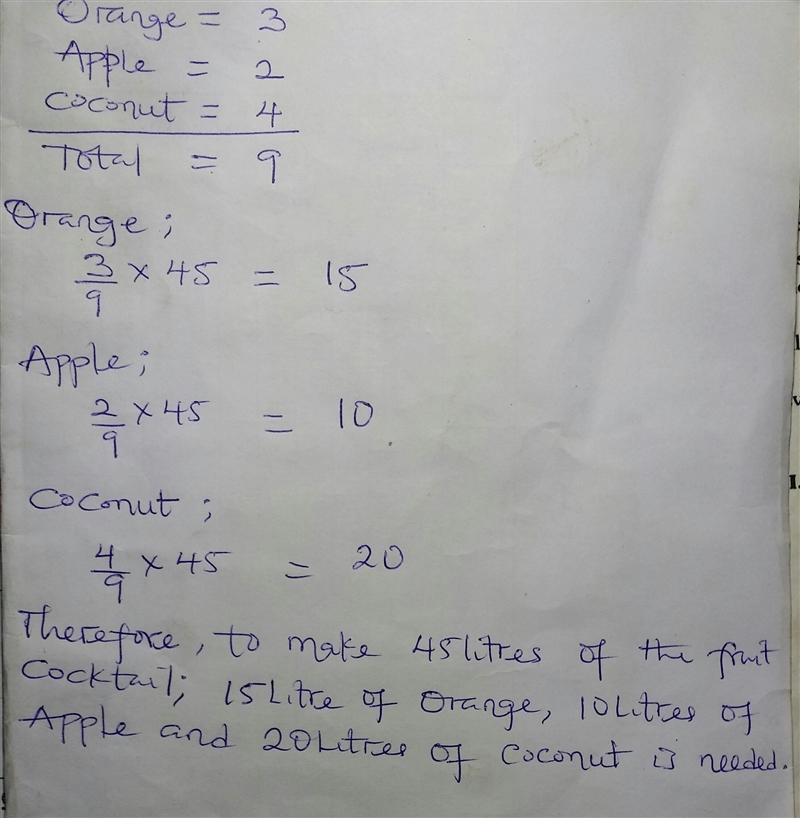 Orange = 3
Apple = 2
Coconut = 4
Total = 9
Orange;
3/9 × 45 = 15
Apple;
2/9 × 45 = 10
Coconut;
4/9 × 45 = 20
Therefore, to make 45litres of the fruit
Cocktail; 15Litre of Orange, 10Litres of
Apple and 20Litres of Coconut is needed.